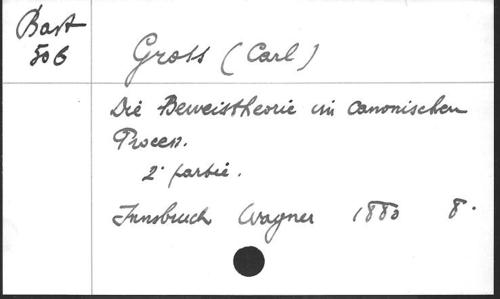 Bast
506
Gross (Carl)
Die Beweistheorie im canonischen
Process.
2e partie.
Innsbruck Wagner 1880 8°